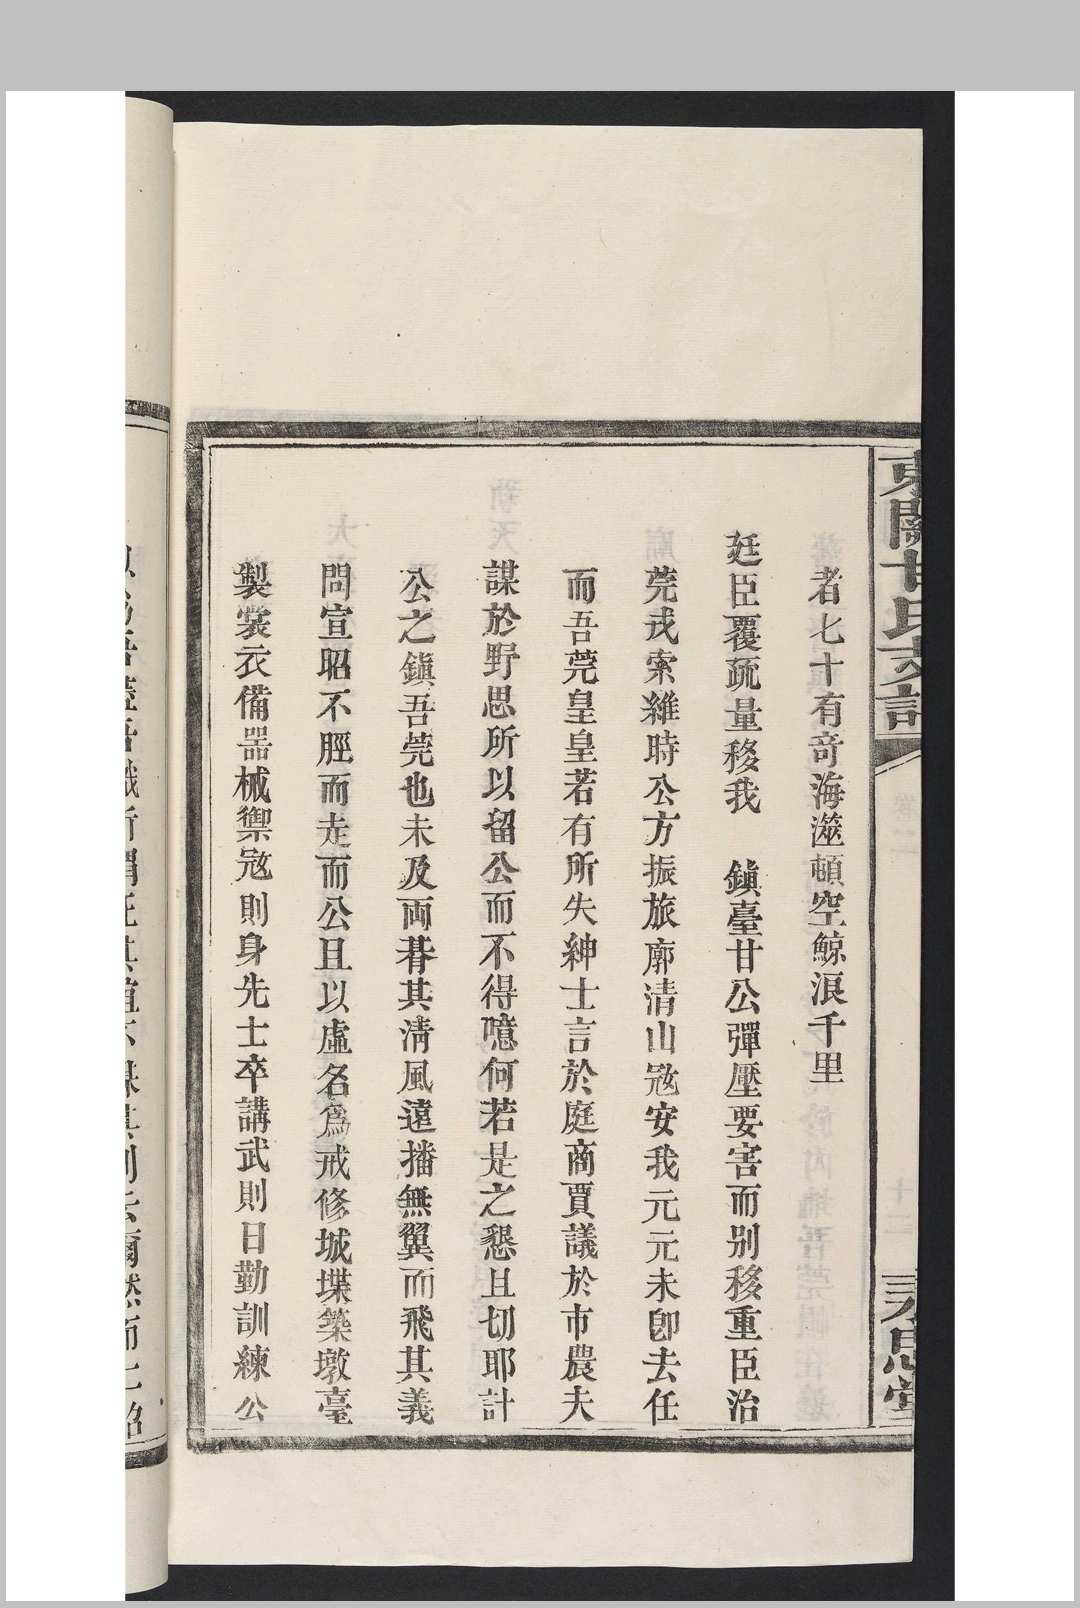 者七十有奇海澨頓空鯨浪千里
廷臣覆疏量移我　鎮臺甘公彈壓要害而別移重臣治
莞戎索維時公方振旅廓清山寇安我元元未卽去任
而吾莞皇皇若有所失紳士言於庭商賈議於市農夫
謀於野思所以留公而不得噫何若是之懇且切耶計
公之鎮吾莞也未及兩朞其淸風遠播無翼而飛其義
問宣昭不脛而走而公且以虛名爲戒修城堞築墩臺
製裳衣備器械禦寇則身先士卒講武則日勤訓練公